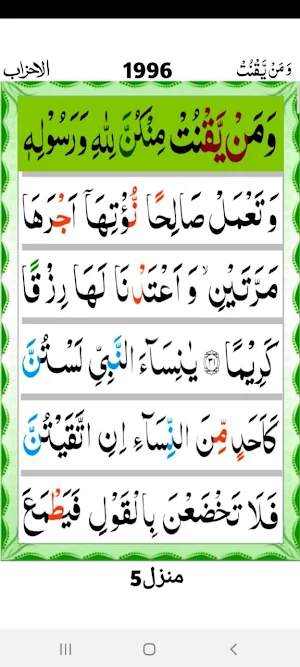 الاحزاب 1996 وَمَنۡ يَّقۡنُتۡ
وَمَنۡ يَّقۡنُتۡ مِنۡكُنَّ لِلّٰهِ وَرَسُوۡلِهٖ
وَتَعۡمَلۡ صَالِحًا نُّؤۡتِهَاۤ اَجۡرَهَا
مَرَّتَيۡنِۙ وَاَعۡتَدۡنَا لَهَا رِزۡقًا
كَرِيۡمًا ﴿۳۱﴾ يٰنِسَآءَ النَّبِىِّ لَسۡتُنَّ
كَاَحَدٍ مِّنَ النِّسَآءِ اِنِ اتَّقَيۡتُنَّ
فَلَا تَخۡضَعۡنَ بِالۡقَوۡلِ فَيَطۡمَعَ
منزل5